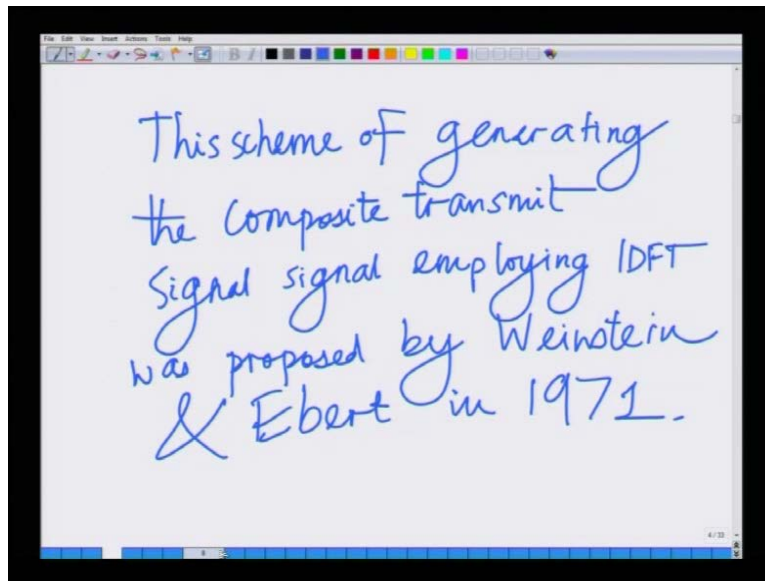 File Edit View Insert Actions Tools Help
B I
This scheme of generating
the composite transmit
Signal signal employing IDFT
was proposed by Weinstein
& Ebert in 1971.
4/33
8